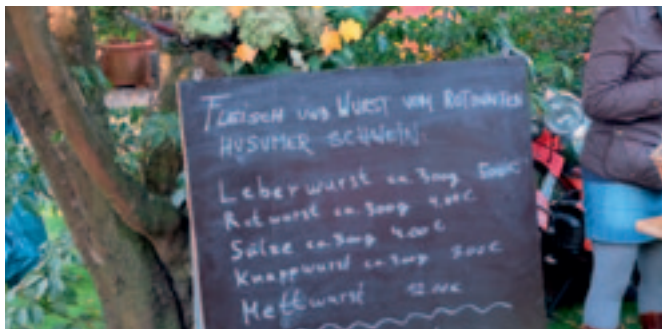 FLEISCH UND WURST VOM ROTBUNTEN
HUSUMER SCHWEIN.
Leberwurst ca. 300g
Rotwurst ca. 300g 4.00€
Sülze ca. 300g 4.00€
Knappwurst ca. 300g 3.00€
Mettwurst 12.00€